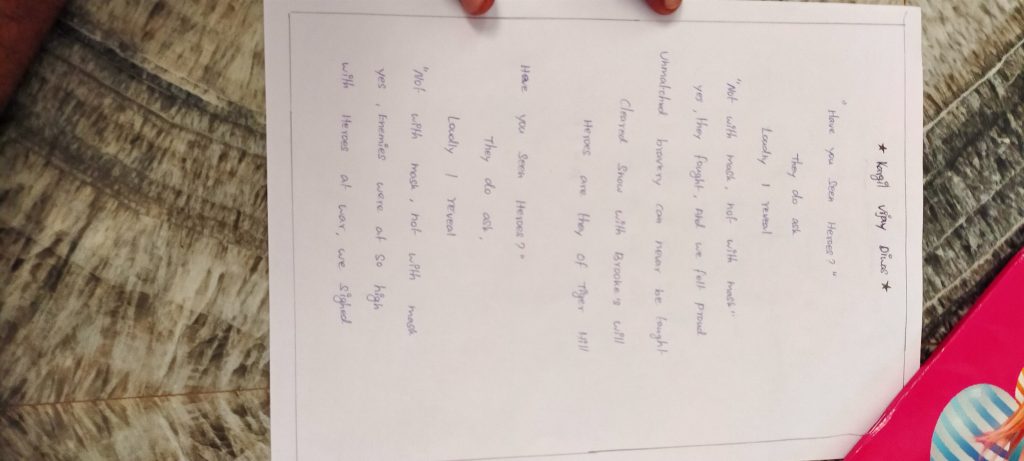 ★ Kargil Vijay Diwas ★
"Have you seen Heroes?"
They do ask
Loudly I reveal
"Not with mask, not with mask"
yes, they fought, And we felt proud
Unmatched bravery can never be fought
Cleared snow with Brooke's will
Heroes are they of Tiger Hill
Have you seen Heroes?"
They do ask,
Loudly I reveal
"Not with mask, not with mask
yes, Enemies were at so high
with Heroes at war, we sighed